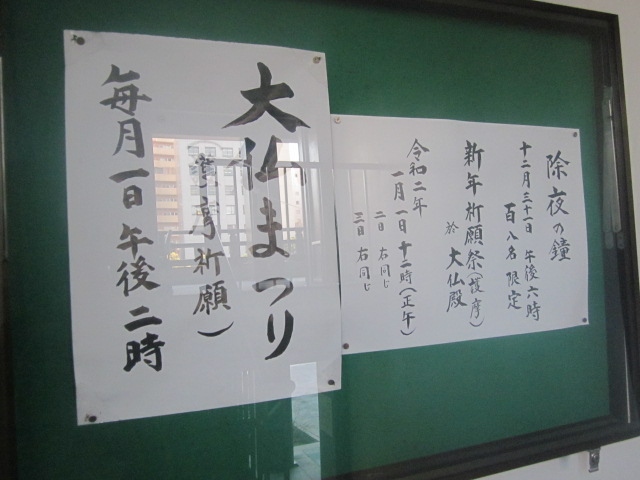 除夜の鐘
十二月三十一日 午後六時
百八名 限定
新年祈願祭(護摩)
於 大仏殿
令和二年
一月一日 十二時(正午)
二日 右同じ
三日 右同じ
大仏まつり
護摩祈願)
毎月一日 午後二時